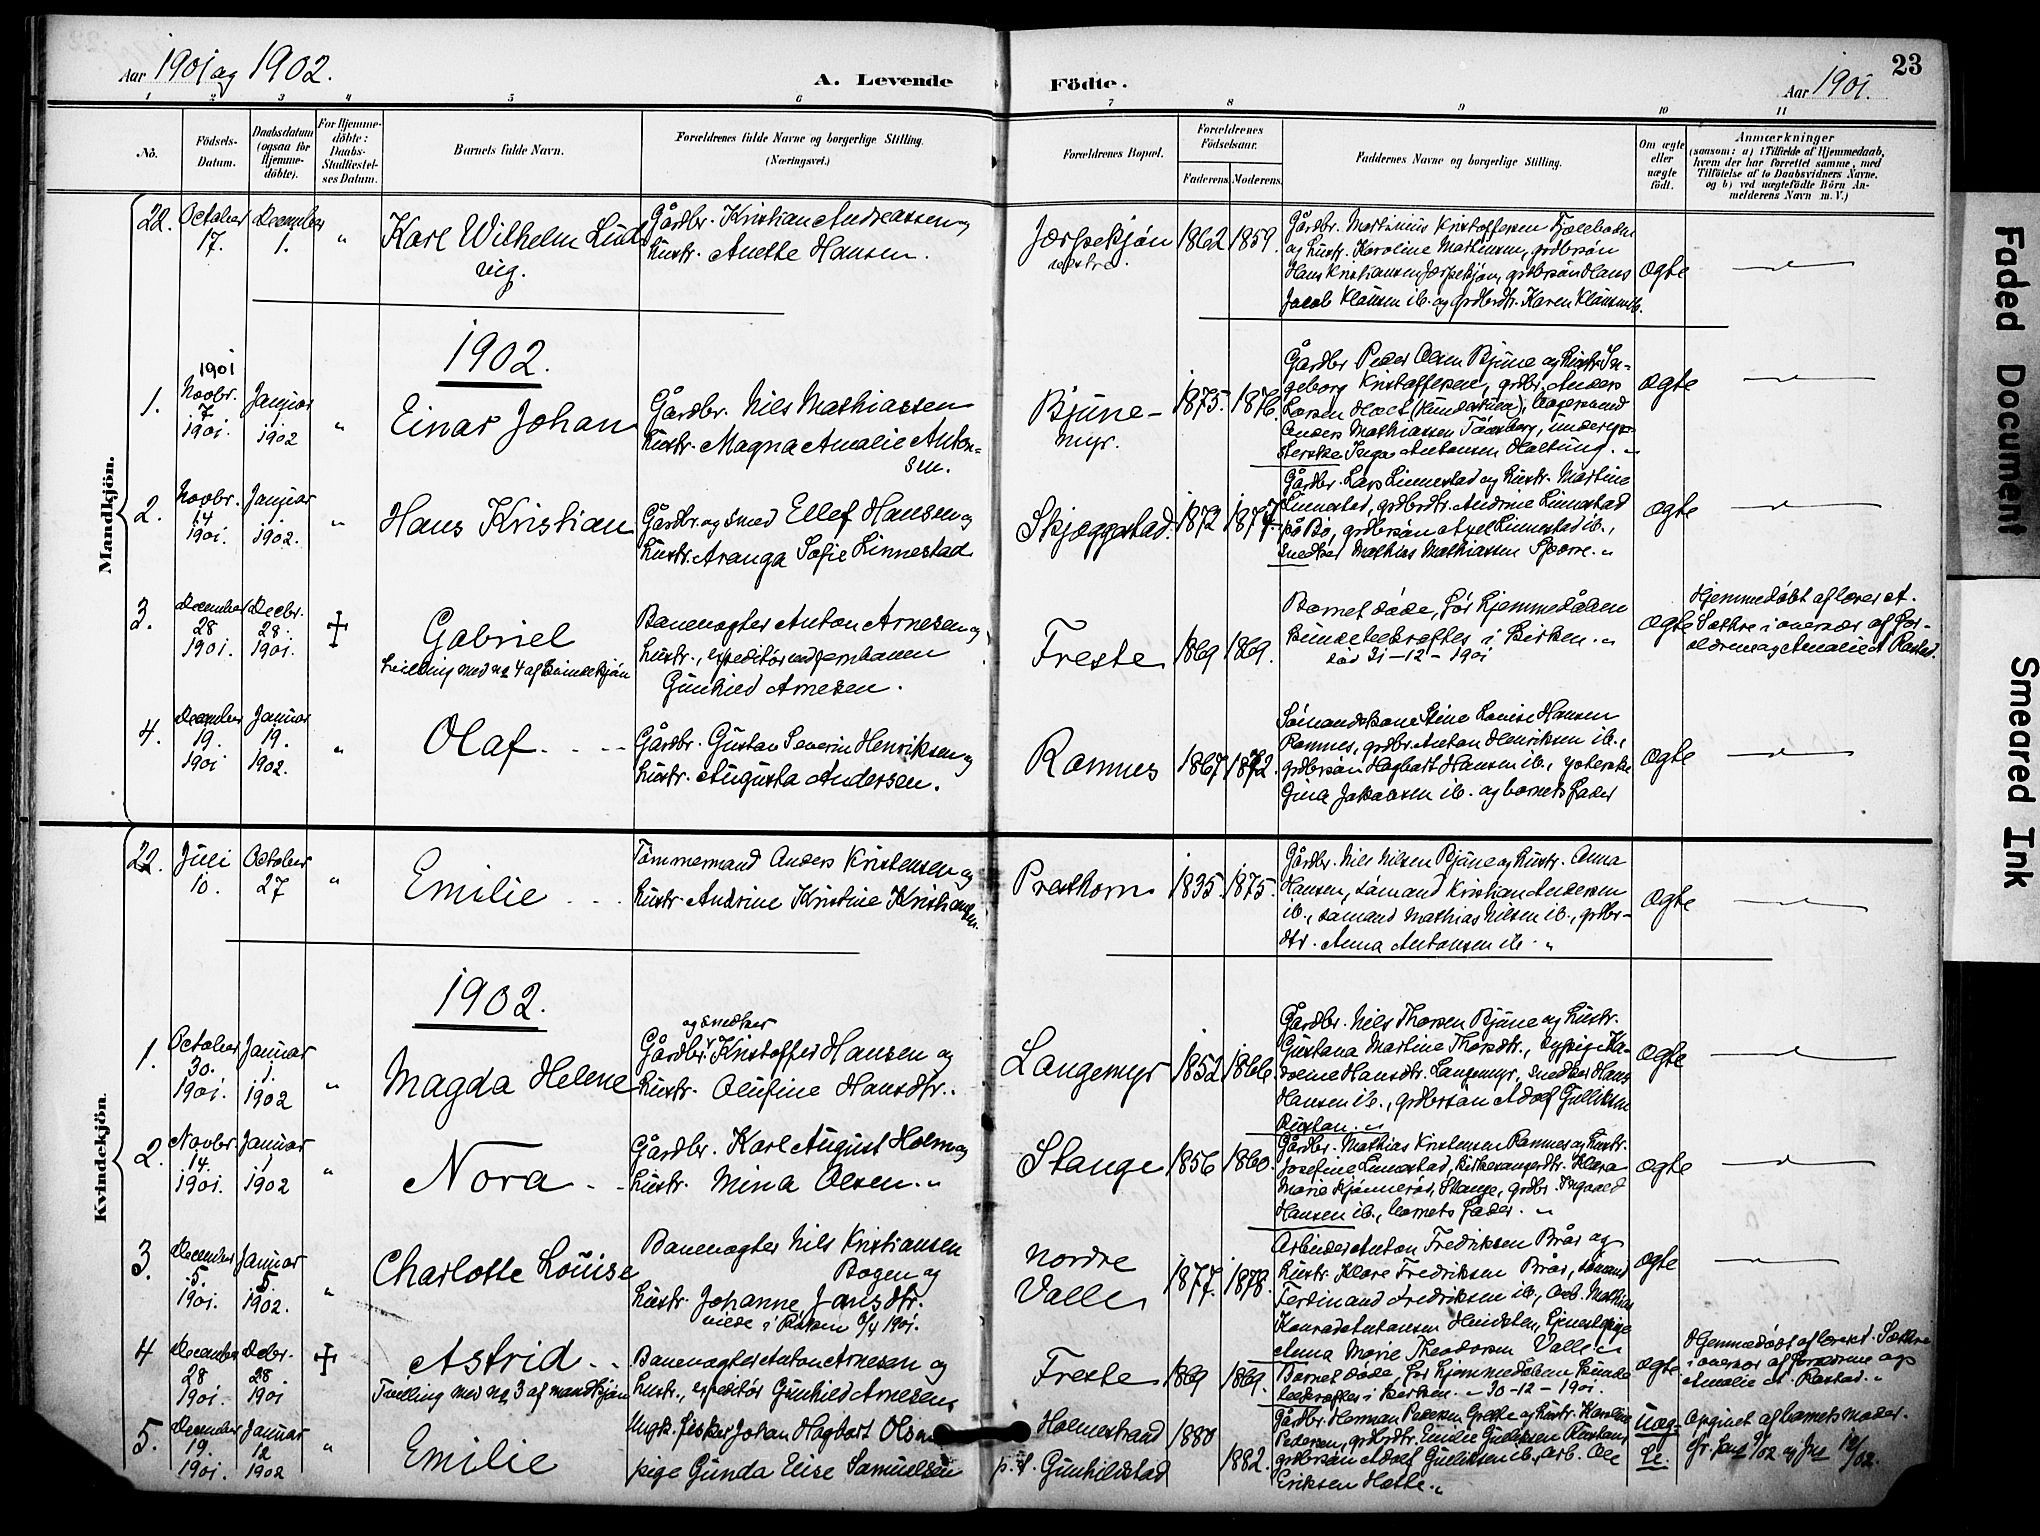 Aar 1901 og 1902.
A. Levende
Födte.
Aar 1901.
23
1 2 3 4 5 6 7 8 9 10 11
No.
Födsels-
Datum.
Daabsdatum
(ogsaa for
Hjemme-
döbte).
For Hjemme-
döbte:
Daabs-
Stadfæstel-
ses Datum.
Barnets fulde Navn.
Forældrenes fulde Navne og borgerlige Stilling.
(Næringsvei.)
Forældrenes Bopæl.
Forældrenes
Födselsaar.
Faderens. Moderens.
Faddernes Navne og borgerlige Stilling.
Om ægte
eller
uægte
födt.
Anmærkninger
(saasom: a) i Tilfælde af Hjemmedaab,
hvem der har forrettet samme, med
Tilföielse af to Daabsvidners Navne,
og b) ved uægtefödte Börn An-
melderens Navn m. V.)
Mandkjön.
22.
October
17.
December
1.
"
Karl Wilhelm Lud-
vig.
Gårdbr. Kristian Andreassen og
hustr. Anette Hansen.
Jærpekjøn
vestre.
1862 1859.
Gårdbr. Martinius Kristoffersen Fjæleboden
og hustr. Karoline Martinsen, grdbrsøn
Hans Kristiansen Jærpekjøn, grdbrsøn Hans
Jacob Klausen ib. og grdbrdtr. Karen Klausen ib.
ægte
1902.
1.
1901
Novbr.
7
1901.
Januar
1
1902
"
Einar Johan
Gårdbr. Nils Mathiassen
hustr. Magna Amalie Anton-
sen.
Bjune-
myr.
1875. 1876.
Gårdbr. Peder Olsen Bjune og hustr. In-
geborg Kristoffersen, grdbr. Anders
Larsen
Anders Mathiassen Tønsberg,
Inga Antonsen Holtung. "
ægte
2.
Novbr.
14
1901.
Januar
1.
1902.
"
Hans Kristian
Gårdbr. og smed Ellef Hansen og
hustr. Aranga Sofie Linnestad
Skjæggestad.
1872 1877.
Gårdbr. Lars Linnestad og hustr. Martine
Linnestad, grdbrdtr. Andrine Linnestad
på Bø, grdbrsøn Axel Linnestad ib.,
snedker Mathias Mathiassen Sporre. "
ægte
3.
December
28
1901.
Decbr.
28.
1901.
Gabriel
tvilling med no 4 af kvindekjøn
Banevogter Anton Arnesen og
hustr., expeditør ved jernbanen
Gunhild Arnesen.
Freste
1869 1869.
Barnet døde, før hjemmedåben
kunde bekræftes i kirken. "
død 31-12-1901
ægte
Hjemmedøbt af lærer A.
Sætre i nærvær af for-
ældrene og Amalie A. Rastad.
4.
December
19.
1901
Januar
19.
1902.
"
Olaf.
Gårdbr. Gustav Severin Henriksen og
hustr. Augusta Andersen.
Ramnes
1867 1872.
Sømandskone Stine Louise Hansen
Ramnes, grdbr. Anton Henriksen ib.,
grdbrsøn Hagbart Hansen ib.,
Gina Jakobsen ib. og barnets fader
ægte
Kvindekjön.
22.
Juli
10.
October
27
"
Emilie
Tømmermand Anders Kristensen og
hustr. Andrine Kristine Kristiansen.
Presthorn
1835 1875.
Gårdbr. Nils Nilsen Bjune og hustr. Anna
Hansen, sømand Kristian Andersen
ib., sømand Mathias Nilsen ib., grdbr-
dtr. Anna Antonsen ib. "
ægte
1902.
1.
October
30.
1901.
Januar
1.
1902
"
Magda Helene
og snedker
Gårdbr. Kristoffer Hansen og
hustr. Olufine Hansdtr.
Langemyr
1852 1866.
Gårdbr. Nils Thorsen Bjune og hustr.
Gustana Martine Thorsdtr., sypige Ka-
roline Hansdtr. Langemyr, snedker Hans
Hansen ib., grdbrsøn Adolf Gulliksen
Rustan. "
ægte
2.
Novbr.
14.
1901.
Januar
1
1902
"
Nora
Gårdbr. Karl August Holm og
hustr. Mina Olsen. "
Stange
1856 1860.
Gårdbr. Mathias Kristensen Ramnes og hustr.
Josefine Linnestad, kirkesangerdtr. Klara
Marie Kjønnerød, Stange, grdbr. Ingvald
Hansen ib., barnets fader. "
ægte
3.
December
5.
1901.
Januar
5.
1902.
"
Charlotte Louise
Banevogter Nils Kristiansen
Bogen og
hustr. Johanne Jansdtr.
viede i Røken 8/4 1901.
Nordre
Valle
1877. 1878.
Arbeider Anton Fredriksen Brår og
hustr. Klare Fredriksen Brår, sømand
Ferdinand Fredriksen ib., arb. Mathias
Konrad Antonsen
Anna Marie Theodorsen Valle "
ægte
4
December
28
1901.
Debr.
28.
1901
Astrid
Tvilling med no 3 af mandkjøn
Banevogter Anton Arnesen og
hustr., expeditør Gunhild Arnesen
Freste
1869 1869.
Barnet døde, før hjemmedåben kunde
bekræftes i kirken. " 30-12-1901.
ægte
Hjemmedøbt af lærer A. Sætre
i nærvær af forældrene og
Amalie A. Rastad. "
5.
December
19.
1901.
Januar
12
1902
"
Emilie
Ungk. fisker Johan Hagbart Olsen
pige Gunda Elise Samuelsen
Holmestrand
p.t. Gunhildstad
1880
1882.
Gårdbr. Herman Pedersen Grette og hustr. Karoline
Pedersen, grdbrdtr. Emilie Gulliksen Rustan,
grdbrsøn Adolf Gulliksen ib., arb. Ole
Eriksen Hætte. "
Uæg-
te.
Opgivet af barnets moder.
Faded Document
Smeared Ink